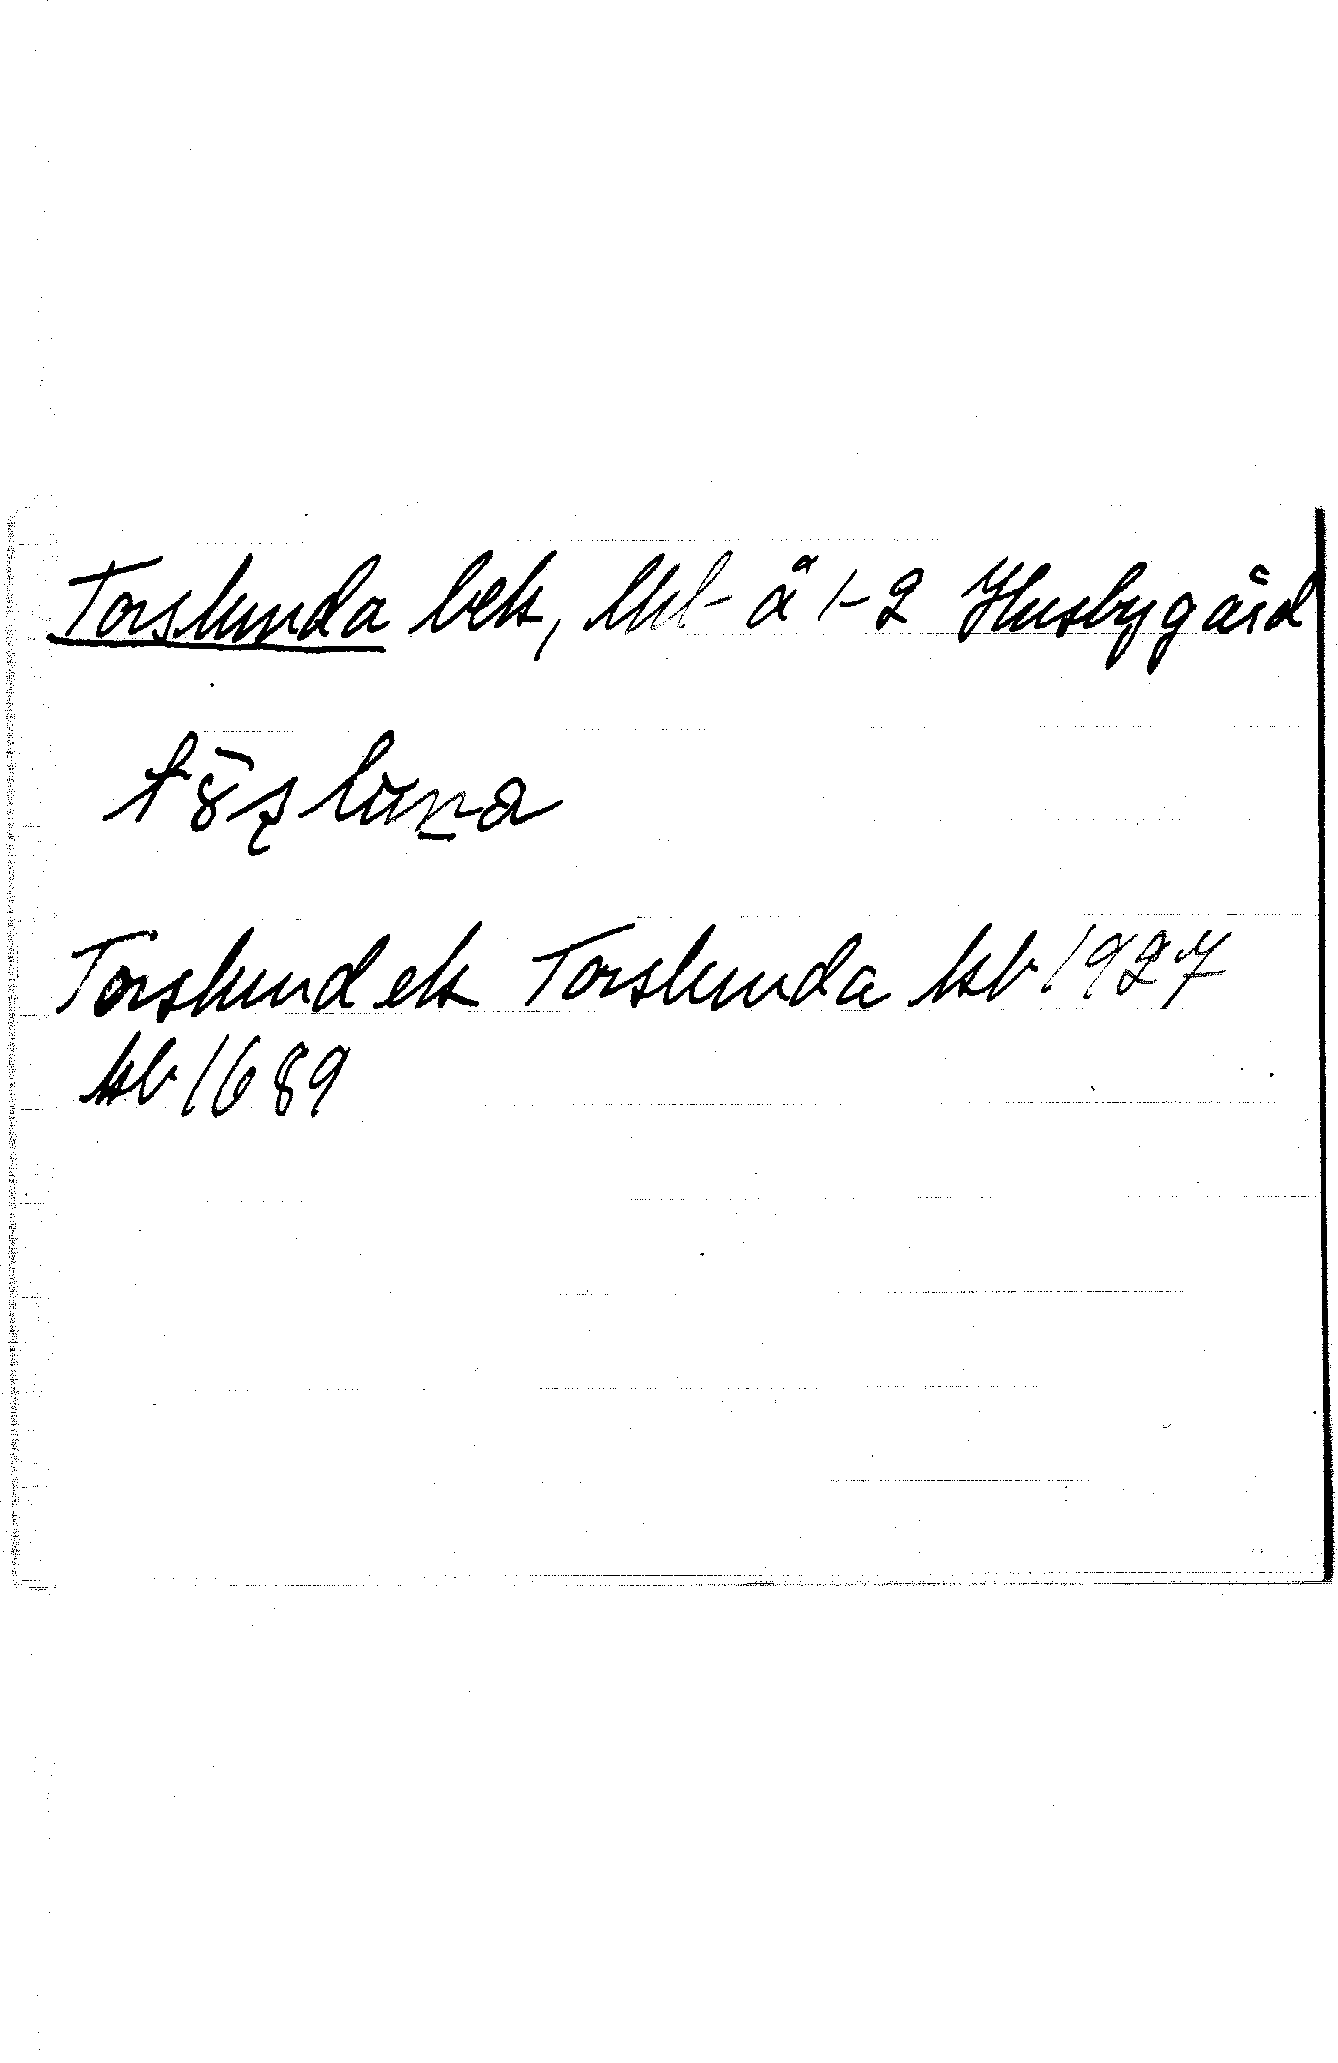 Torslunda bek, Ukl-å 1-2 Husbygård
Torslund ek Torslunda kb 1927
kb 1689